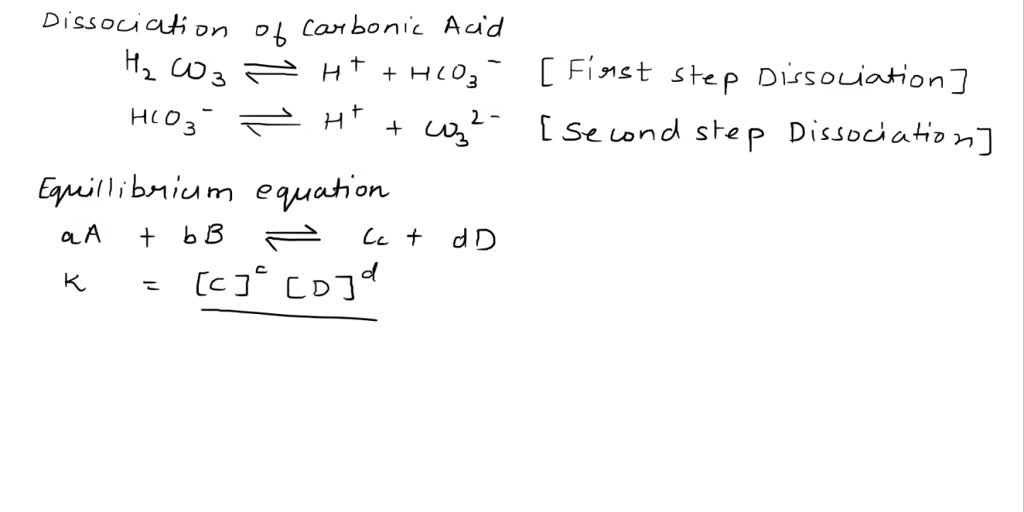 Dissociation of Carbonic Acid
H₂CO₃ ⇌ H⁺ + HCO₃⁻ [First step Dissociation]
HCO₃⁻ ⇌ H⁺ + CO₃²⁻ [Second step Dissociation]
Equillibrium equation
aA + bB ⇌ Cc + dD
K = [C]ᶜ [D]ᵈ